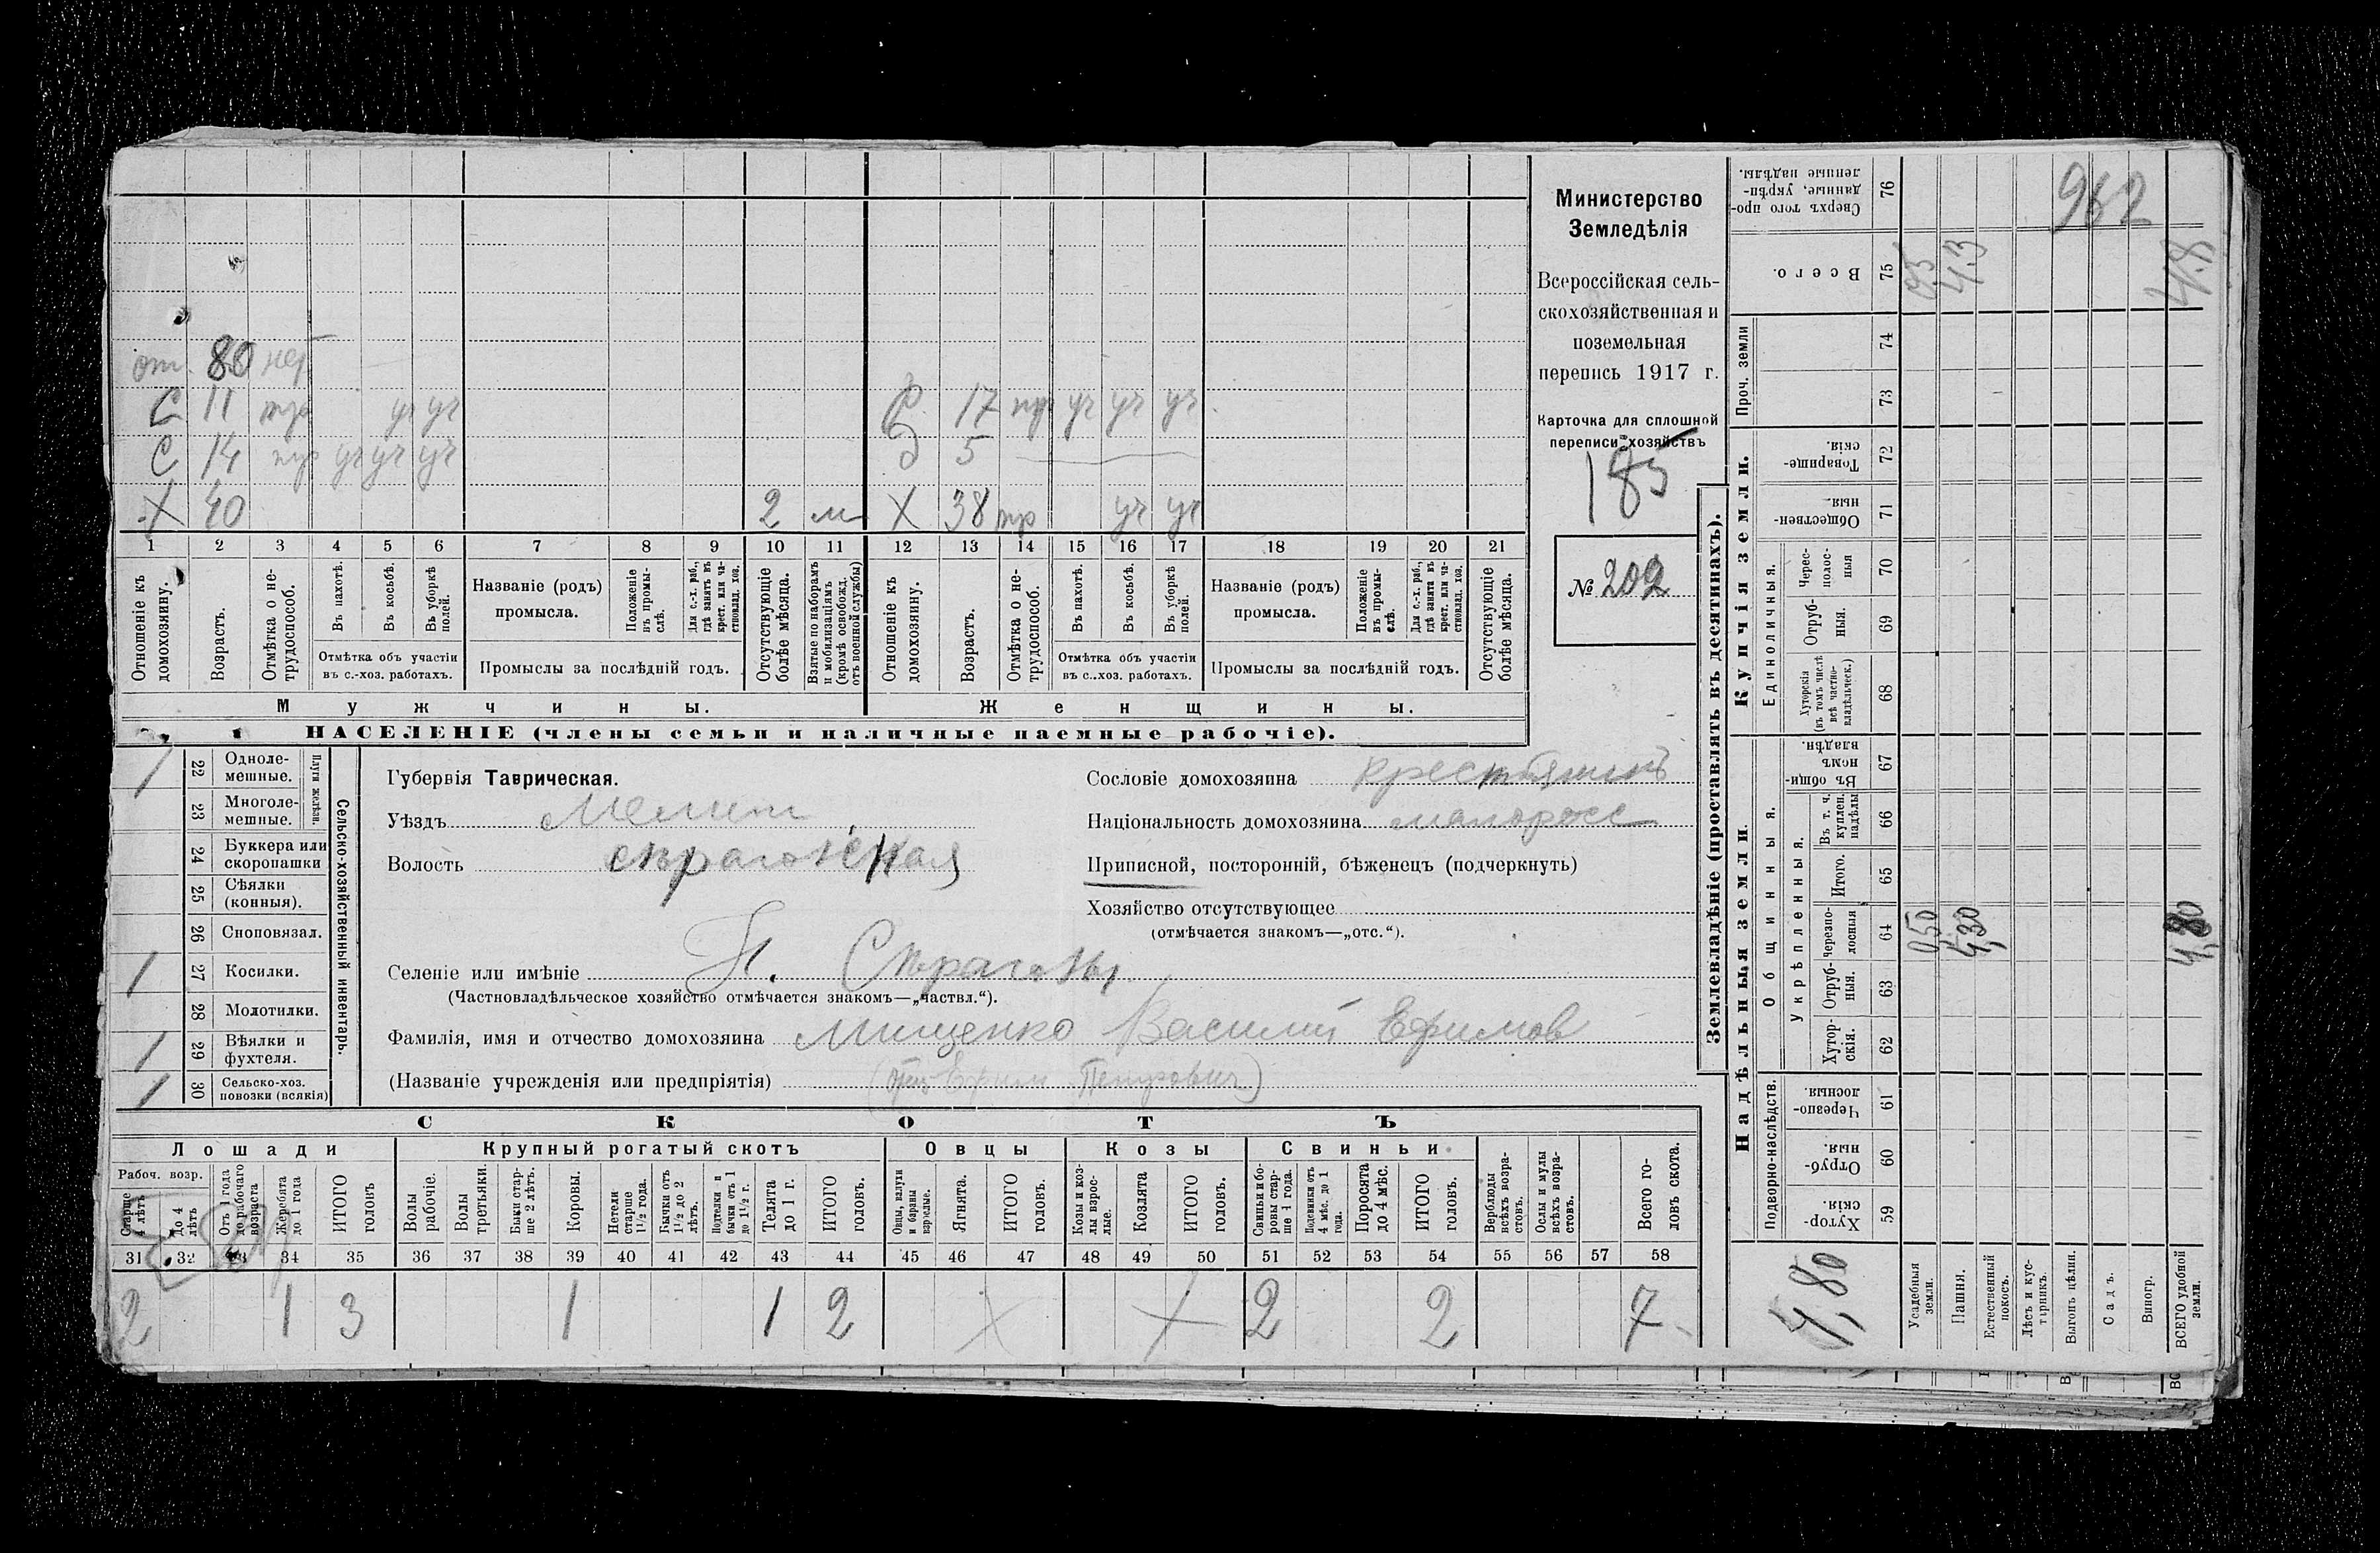 от. 80 нет
С 11 тр уч уч
С 14 тр уч уч уч
Х 40 2 м
17 тр уч уч уч
д 5
Х 38 тр уч уч
1 2 3 4 5 6 7 8 9 10 11 12 13 14 15 16 17 18 19 20 21
Отношеніе къ домохозяину.
Возрастъ.
Отмѣтка о не-
трудоспособ.
Въ пахотѣ.
Въ косьбѣ.
Въ уборкѣ полей.
Отмѣтка объ участіи
въ с.-хоз. работахъ.
Названіе (родъ)
промысла.
Положеніе
въ промы-
слѣ.
Для с.-х. раб.,
гдѣ занятъ въ
крест. или ча-
стновлад. хоз.
Промыслы за послѣдній годъ.
Отсутствующіе
болѣе мѣсяца.
Взятые по наборамъ
и мобилизаціямъ
(кромѣ освобожд.
отъ военной службы)
Отношеніе къ
домохозяину.
Возрастъ.
Отмѣтка о не-
трудоспособ.
Въ пахотѣ.
Въ косьбѣ.
Въ уборкѣ
полей.
Отмѣтка объ участіи
въ с.-хоз. работахъ.
Названіе (родъ)
промысла.
Положеніе
въ промы-
слѣ.
Для с.-х. раб.,
гдѣ занята въ
крест. или ча-
стновлад. хоз.
Промыслы за послѣдній годъ.
Отсутствующіе
болѣе мѣсяца.
Мужчины.
Женщины.
НАСЕЛЕНІЕ (члены семьи и наличные наемные рабочіе).
Министерство
Земледѣлія
Всероссійская сель-
скохозяйственная и
поземельная
перепись 1917 г.
Карточка для сплошной
переписи хозяйствъ
185
№ 202
1 22 Одноле-
мешные.
23 Многоле-
мешные.
Плуги желѣзн.
24 Буккера или
скоропашки
25 Сѣялки
(конныя).
26 Сноповязал.
1 27 Косилки.
28 Молотилки.
1 29 Вѣялки и
фухтеля.
1 30 Сельско-хоз.
повозки (всякія)
Сельско-хозяйственный инвентарь.
Губернія Таврическая.
Уѣздъ Мелит
Волость
Селеніе или имѣніе Н.
(Частновладѣльческое хозяйство отмѣчается знакомъ—„частвл.“).
Фамилія, имя и отчество домохозяина Мищенко Василий Ефимов
(Названіе учрежденія или предпріятія) (отец Ефим Петрович)
Сословіе домохозяина крестьянинъ
Національность домохозяина малоросс
Приписной, посторонній, бѣженецъ (подчеркнуть)
Хозяйство отсутствующее
(отмѣчается знакомъ—„отс.“).
СКОТЪ
Лошади
Рабоч. возр.
Старше
4 лѣтъ
До 4
лѣтъ
Отъ 1 года
до рабочаго
возраста
Жеребята
до 1 года
ИТОГО
головъ
Крупный рогатый скотъ
Волы
рабочіе.
Волы
третьяки.
Быки стар-
ше 2 лѣтъ.
Коровы.
Нетели
старше
1½ года.
Бычки отъ
1½ до 2
лѣтъ.
Подтелки и
бычки отъ 1
до 1½ г.
Телята
до 1 г.
ИТОГО
головъ.
Овцы
Овцы, валухи
и бараны
взрослые.
Ягнята.
ИТОГО
головъ.
Козы
Козы и коз-
лы взрос-
лые.
Козлята
ИТОГО
головъ.
Свиньи
Свиньи и бо-
ровы стар-
ше 1 года.
Подсвинки отъ
4 мѣс. до 1
года.
Поросята
до 4 мѣс.
ИТОГО
головъ.
Верблюды
всѣхъ возра-
стовъ.
Ослы и мулы
всѣхъ возра-
стовъ.
Всего го-
ловъ скота.
31 32 33 34 35 36 37 38 39 40 41 42 43 44 45 46 47 48 49 50 51 52 53 54 55 56 57 58
2 1 3 1 1 2 2 2 7
Землевладѣніе (проставлять въ десятинахъ).
962
Сверхъ того про-
данные, укрѣп-
ленные надѣлы.
76
Всего.
75
0,5
4,3
4,8
Проч. земли
74
73
Купчія земли.
Товарище-
скія.
72
Обществен-
ныя.
71
Единоличныя.
Черес-
полос-
ныя
70
Отруб-
ныя.
69
Хуторскія
(въ томъ числѣ
всѣ частно-
владѣльческ.)
68
Надѣльныя земли.
Общинныя.
Въ общи-
номъ
владѣн.
67
Укрѣпленныя.
Въ т. ч.
куплен.
надѣлы
66
Итого.
65
Черезпо-
лосныя
64
0,50
4,30
4,80
Отруб-
ныя.
63
Хутор-
скія.
62
Подворно-наслѣдств.
Черезпо-
лосныя.
61
Отруб-
ныя.
60
Хутор-
скія.
59
4,80
Усадебныя
земли.
Пашня.
Естественный
покосъ.
Лѣсъ и кус-
тарникъ.
Выгонъ цѣлин.
Садъ.
Виногр.
ВСЕГО удобной
земли.